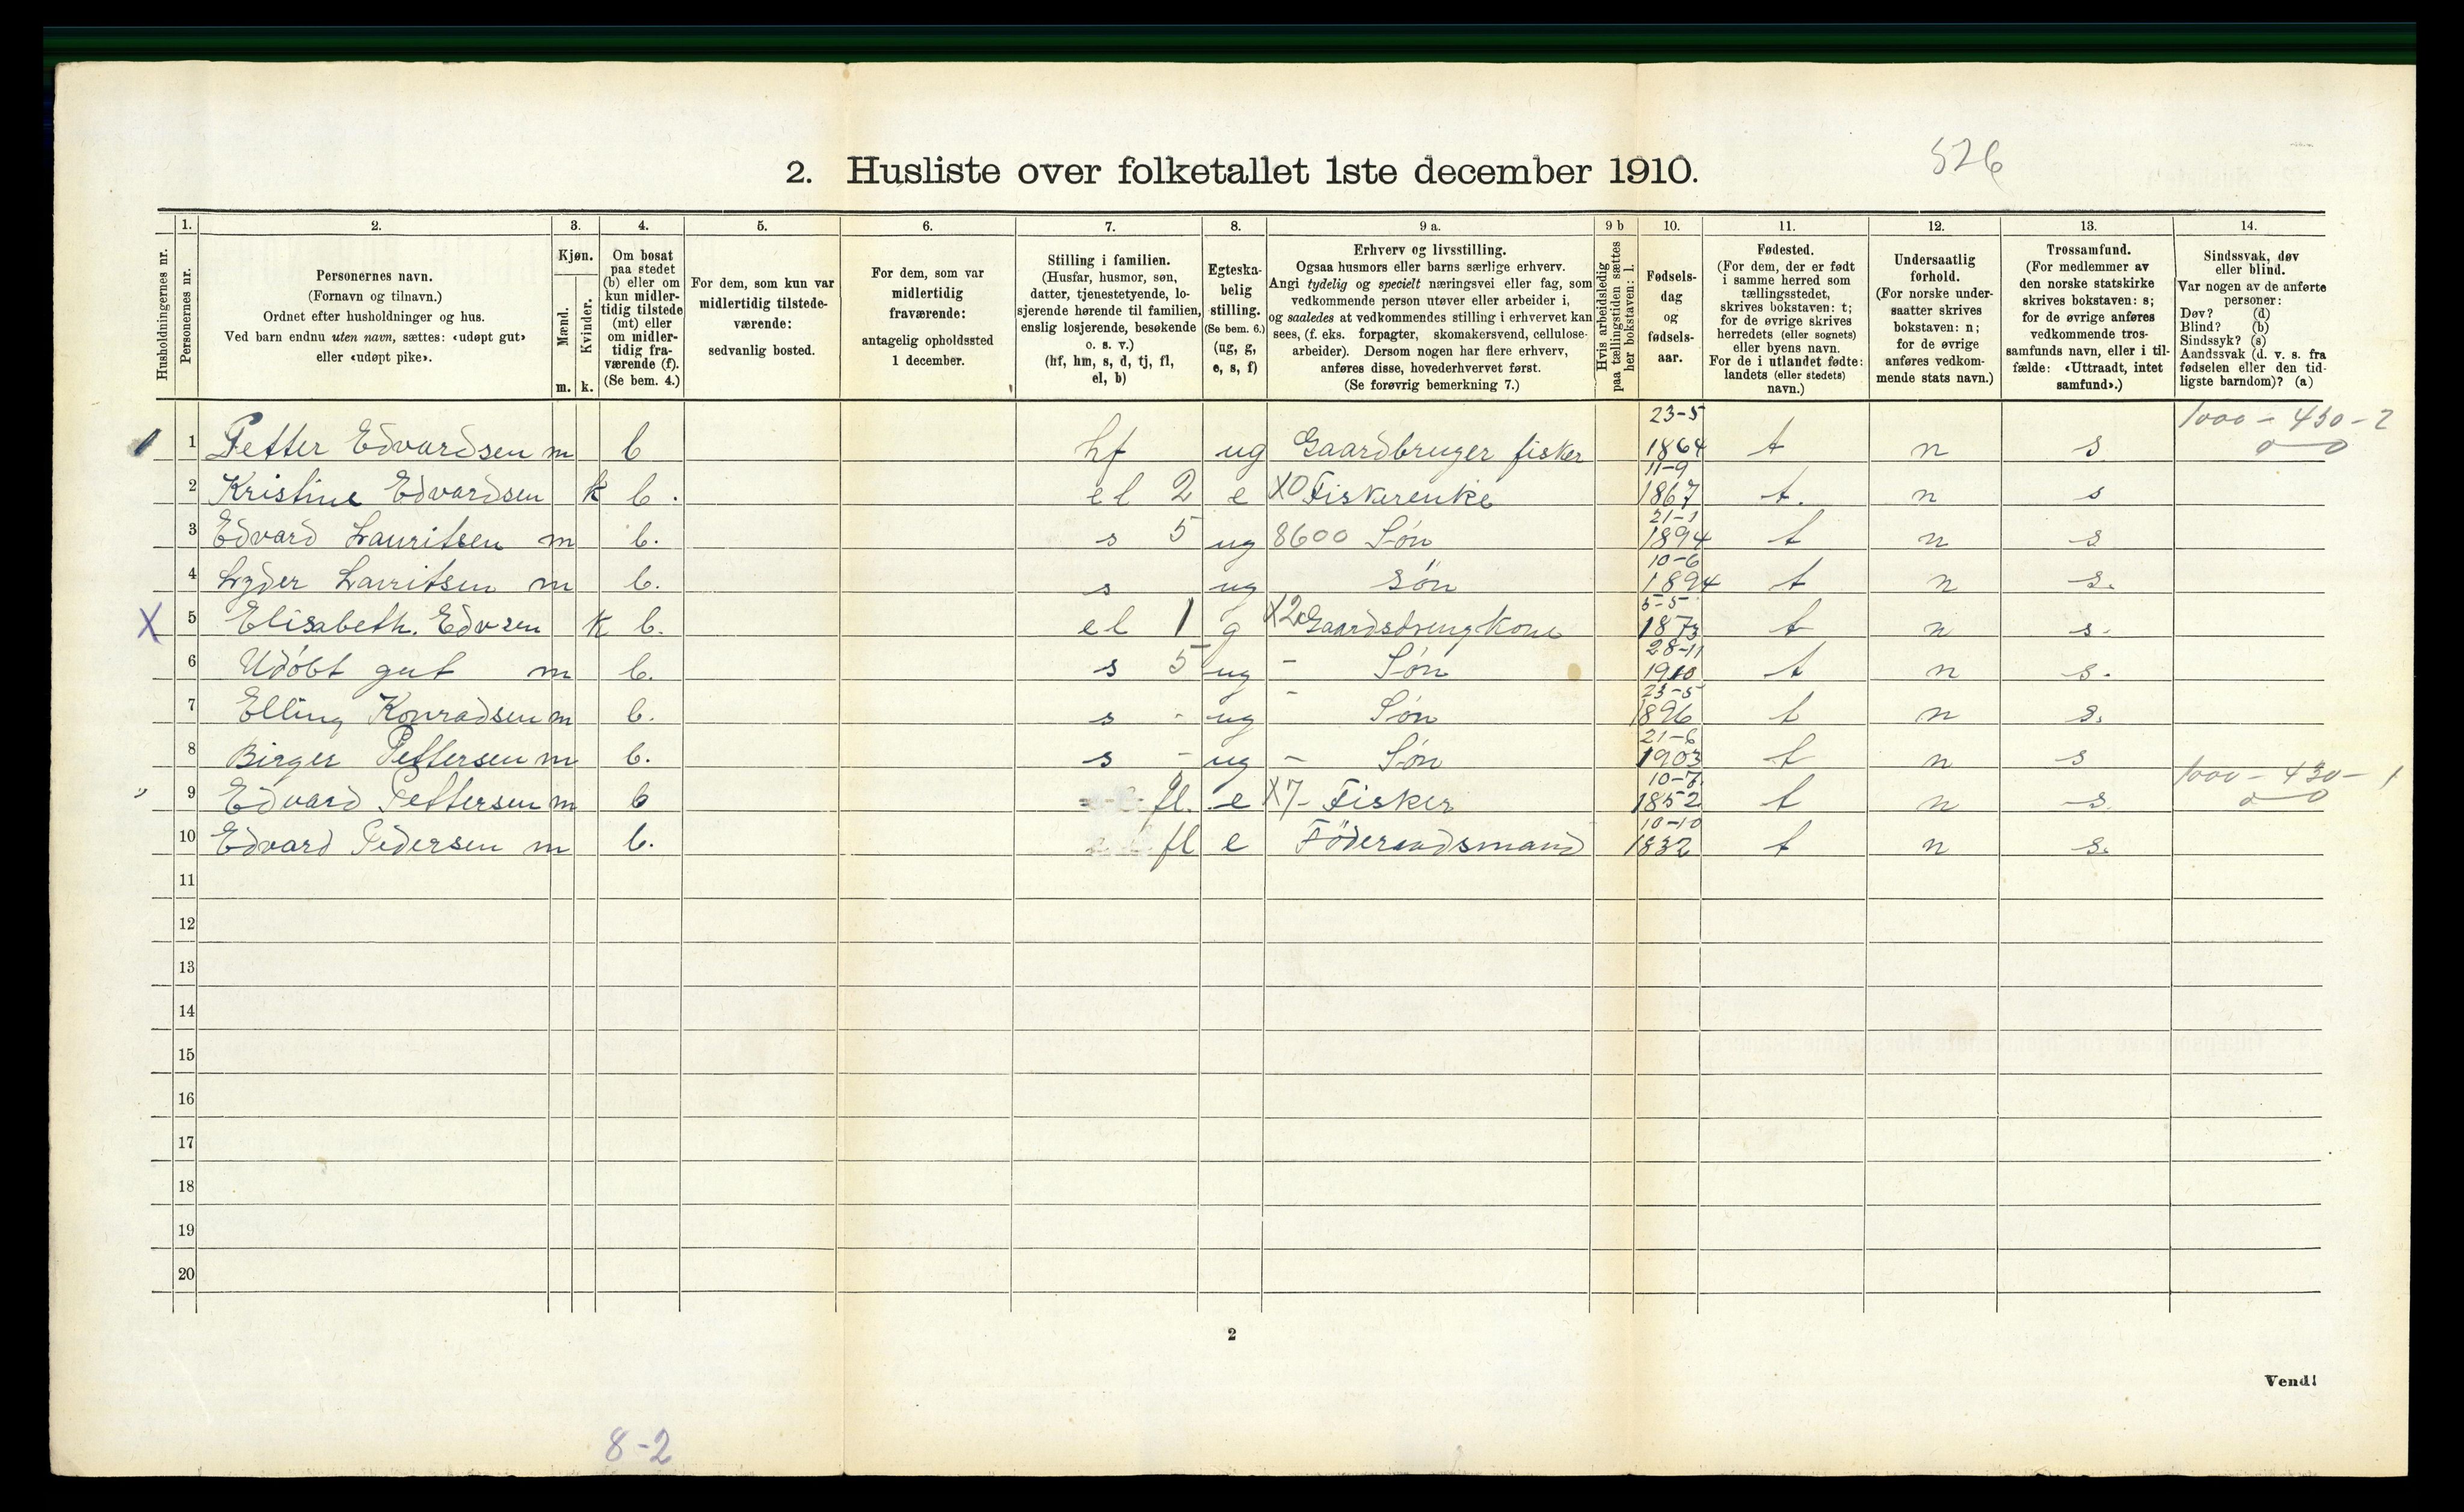 526
2. Husliste over folketallet 1ste december 1910.
Husholdningernes nr.
1.
Personernes nr.
2.
Personernes navn.
(Fornavn og tilnavn.)
Ordnet efter husholdninger og hus.
Ved barn endnu uten navn, sættes: «udøpt gut»
eller «udøpt pike».
3.
Kjøn.
Mænd.
Kvinder.
m. k.
4.
Om bosat
paa stedet
(b) eller om
kun midler-
tidig tilstede
(mt) eller
om midler-
tidig fra-
værende (f).
(Se bem. 4.)
5.
For dem, som kun var
midlertidig tilstede-
værende:
sedvanlig bosted.
6.
For dem, som var
midlertidig
fraværende:
antagelig opholdssted
1 december.
7.
Stilling i familien.
(Husfar, husmor, søn,
datter, tjenestetyende, lo-
sjerende hørende til familien,
enslig losjerende, besøkende
o. s. v.)
(hf, hm, s, d, tj, fl,
el, b)
8.
Egteska-
belig
stilling.
(Se bem. 6.)
(ug, g,
e, s, f)
9 a.
Erhverv og livsstilling.
Ogsaa husmors eller barns særlige erhverv.
Angi tydelig og specielt næringsvei eller fag, som
vedkommende person utøver eller arbeider i,
og saaledes at vedkommendes stilling i erhvervet kan
sees, (f. eks. forpagter, skomakersvend, cellulose-
arbeider). Dersom nogen har flere erhverv,
anføres disse, hovederhvervet først.
(Se forøvrig bemerkning 7.)
9 b
Hvis arbeidsledig
paa tællingstiden sættes
her bokstaven: l.
10.
Fødsels-
dag
og
fødsels-
aar.
11.
Fødested.
(For dem, der er født
i samme herred som
tællingsstedet,
skrives bokstaven: t;
for de øvrige skrives
herredets (eller sognets)
eller byens navn.
For de i utlandet fødte:
landets (eller stedets)
navn.)
12.
Undersaatlig
forhold.
(For norske under-
saatter skrives
bokstaven: n;
for de øvrige
anføres vedkom-
mende stats navn.)
13.
Trossamfund.
(For medlemmer av
den norske statskirke
skrives bokstaven: s;
for de øvrige anføres
vedkommende tros-
samfunds navn, eller i til-
fælde: «Uttraadt, intet
samfund».)
14.
Sindssvak, døv
eller blind.
Var nogen av de anførte
personer:
Døv? (d)
Blind? (b)
Sindssyk? (s)
Aandssvak (d. v. s. fra
fødselen eller den tid-
ligste barndom)? (a)
1 1 Petter Edvardsen m b hf ug Gaardbruger fisker 23-5 1864 t n s 1000 - 430 - 2 0 0
2 Kristine Edvardsen k b. el 2 e X0 Fiskerenke 11-9 1867 t. n s
3 Edvard Lauritsen m b. s 5 ug 8600 Søn 21-1 1894 t n s
4 Lyder Lauritsen m b. s ug Søn 10-6 1894 t n s.
X 5 Elisabeth. Edvsen k b. el 1 g X2 Gaardsdrengkone 5-5 1873 t n s.
6 Udöbt gut m b. s 5 ug - Søn 28-11 1910 t n s.
7 Elling Konradsen m b. s - ug - Søn 23-5 1896 t n s.
8 Birger Pettersen m b. s - ug - Søn 21-6 1903 t n s
" 9 Edvard Pettersen m b fl. e X7- Fisker 10-7. 1852 t n s. 1000 - 430 - 1 0 0
10 Edvard Pedersen m b. fl e Föderaadsmand 10-10 1832 t n s.
11
12
13
14
15
16
17
18
19
20
2
Vend!
8-2